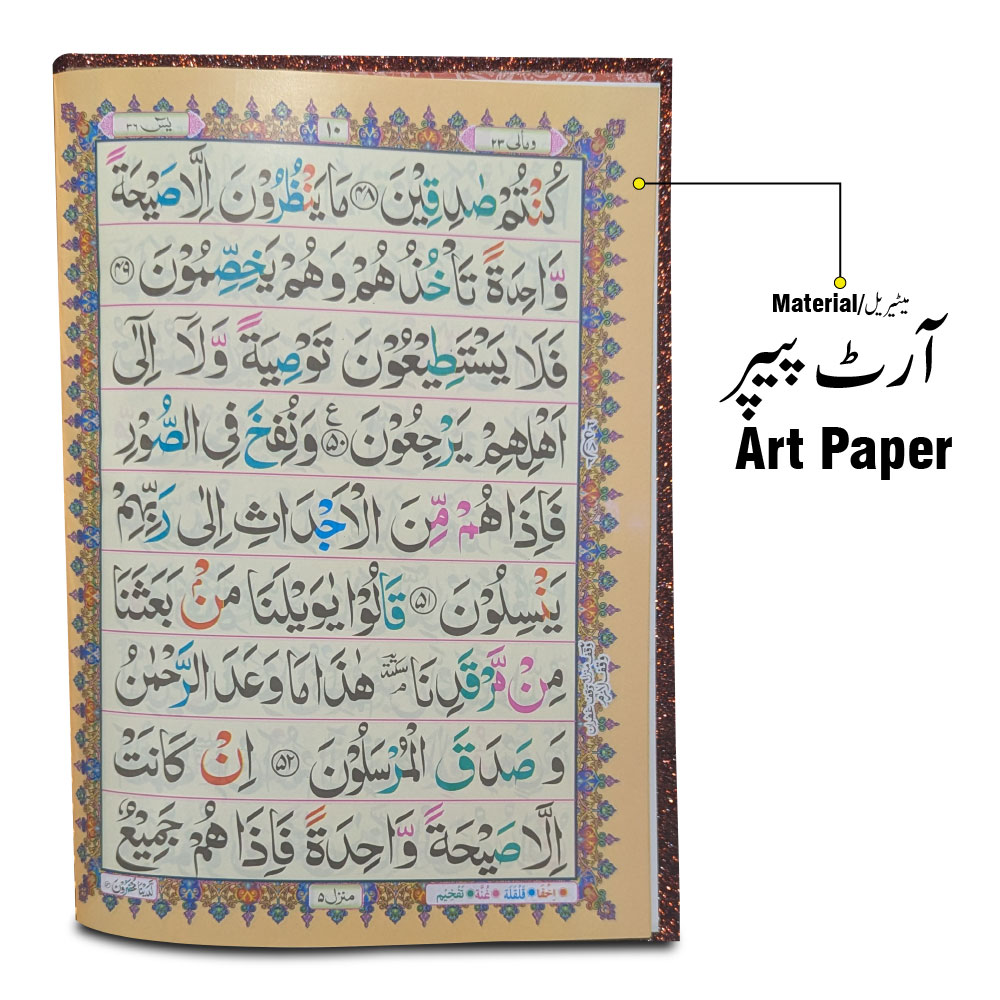 وَمَالِیَ ۲۳
۱۰
یٰسٓ ۳۶
كُنْتُمْ صٰدِقِیْنَ ﴿۴۸﴾ مَا یَنْظُرُوْنَ اِلَّا صَیْحَةً
وَّاحِدَةً تَاْخُذُهُمْ وَهُمْ یَخِصِّمُوْنَ ﴿۴۹﴾
فَلَا یَسْتَطِیْعُوْنَ تَوْصِیَةً وَّلَاۤ اِلٰۤی
اَهْلِهِمْ یَرْجِعُوْنَ ﴿۵۰﴾ ع وَنُفِخَ فِی الصُّوْرِ
فَاِذَا هُمْ مِّنَ الْاَجْدَاثِ اِلٰی رَبِّهِمْ
یَنْسِلُوْنَ ﴿۵۱﴾ قَالُوْا یٰوَیْلَنَا مَنْۢ بَعَثَنَا
مِنْ مَّرْقَدِنَا ۘ سكتة هٰذَا مَا وَعَدَ الرَّحْمٰنُ
وَ صَدَقَ الْمُرْسَلُوْنَ ﴿۵۲﴾ اِنْ كَانَتْ
اِلَّا صَیْحَةً وَّاحِدَةً فَاِذَا هُمْ جَمِیْعٌ
اِخْفَا قَلْقَلَة غُنَّه تَفْخِیْم
منزل ۵
لَّدَیْنَا مُحْضَرُوْنَ
Material/میٹیریل
آرٹ پیپر
Art Paper